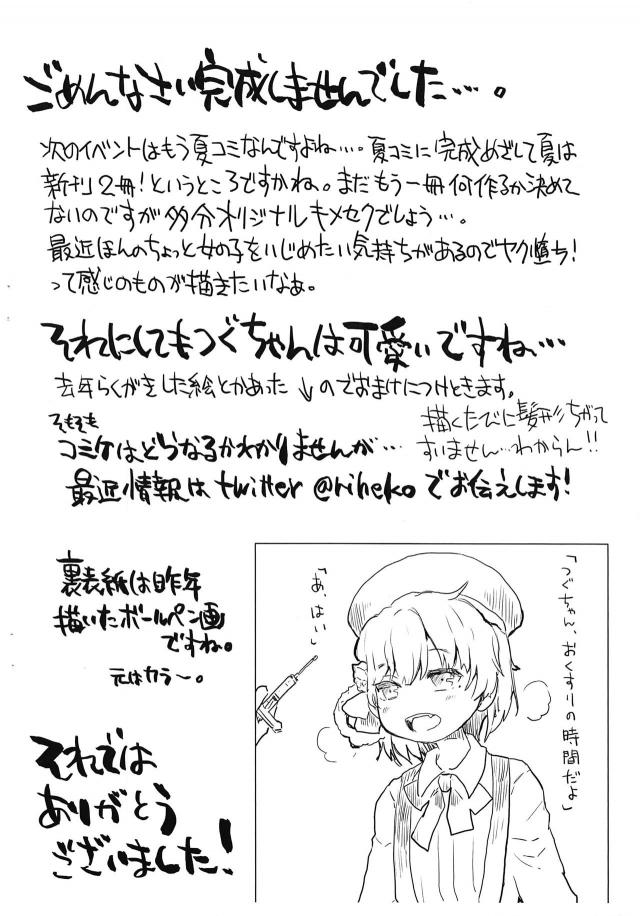 ごめんなさい完成しませんでした…。
次のイベントはもう夏コミなんですよね…。夏コミに完成めざして夏は
新刊2冊!というところですかね。まだもう一冊何作るか決めて
ないのですが多分オリジナルキメセクでしょう…。
最近ほんのちょっと女の子をいじめたい気持ちがあるのでヤク堕ち!
って感じのものが描きたいなぁ。
それにしてもつぐちゃんは可愛いですね…
去年らくがきした絵とかあった↓のでおまけにつけときます。
描くたびに髪形ちがって
すいません…わからん!!
そもそも
コミケはどうなるかわかりませんが…
最近情報はtwitter @rihekoでお伝えします!
裏表紙は昨年
描いたボールペン画
ですね。
元はカラ〜。
「つぐちゃん、おくすりの時間だよ」
「あ、はい」
それでは
ありがとう
ございました!